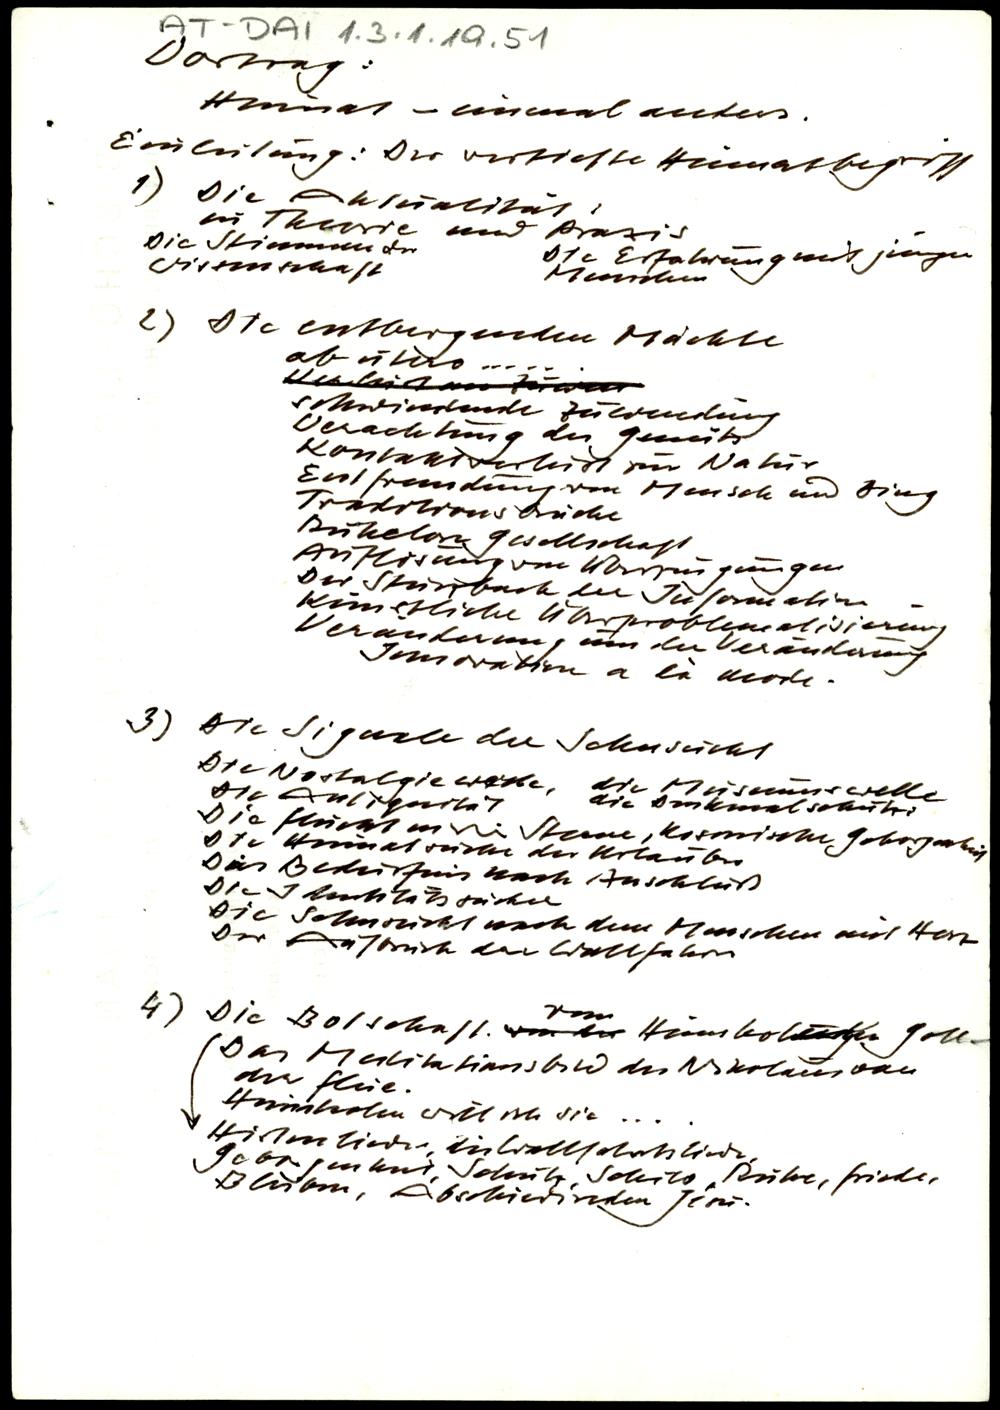 AT-DAI 1.3.1.19.51
Vortrag:
Heimat – einmal anders.
Einleitung: Der vertiefte Heimatbegriff
1) Die Aktualität:
in Theorie und Praxis
Die Stimmen der Wissenschaft
Die Erfahrung mit jungen Menschen
2) Die entbergenden Mächte
ab utero .....
schwindende Zuwendung
Verachtung des Gemüts
Kontaktverlust zur Natur
Entfremdung von Mensch und Ding
Traditionsbrüche
Ruhelose Gesellschaft
Auflösung von Überzeugungen
Der Sturzbach der Information
Künstliche Überproblematisierung
Veränderung um der Veränderung
Innovation a la mode.
3) Die Signale der Sehnsucht
Die Nostalgiewelle, die Museumswelle
Die Antiquität die Denkmalschutz
Die Flucht in die Sterne, kosmische Geborgenheit
Die Heimatsuche der Urlauber
Das Bedürfnis nach Anschluß
Die Identitätssuche
Die Sehnsucht nach dem Menschen mit Herz
Der Aufbruch der Wallfahrer
4) Die Botschaft vom Heimholenden Gott
Das Meditationsbild des Nikolaus von
der Flüe.
Heimholen will ich sie ....
Hirtenlieder, Wallfahrtslieder,
Geborgenheit, Schutz, Schild, Ruhe, Friede,
Bleiben, Abschiedsreden Jesu.